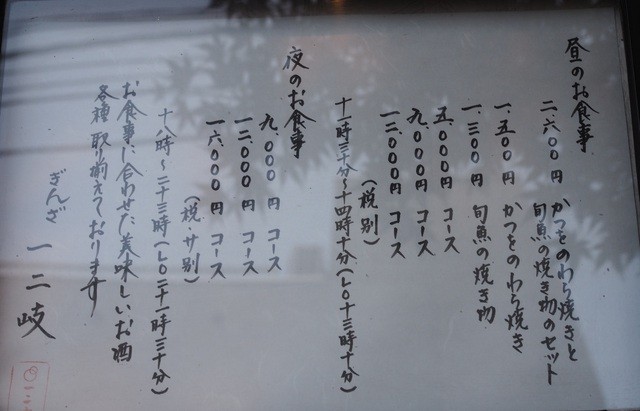 昼のお食事
二、六〇〇円 かつをのわら焼きと
旬魚の焼き物のセット
一、五〇〇円 かつをのわら焼き
一、三〇〇円 旬魚の焼き物
五、〇〇〇円 コース
九、〇〇〇円 コース
一二、〇〇〇円 コース
（税別）
十一時三十分〜十四時十分（LO十三時十分）
夜のお食事
九、〇〇〇円 コース
一二、〇〇〇円 コース
一六、〇〇〇円 コース
（税・サ別）
十八時〜二十三時（LO二十一時三十分）
お食事に合わせた美味しいお酒
各種取り揃えております
ぎんざ 一二岐